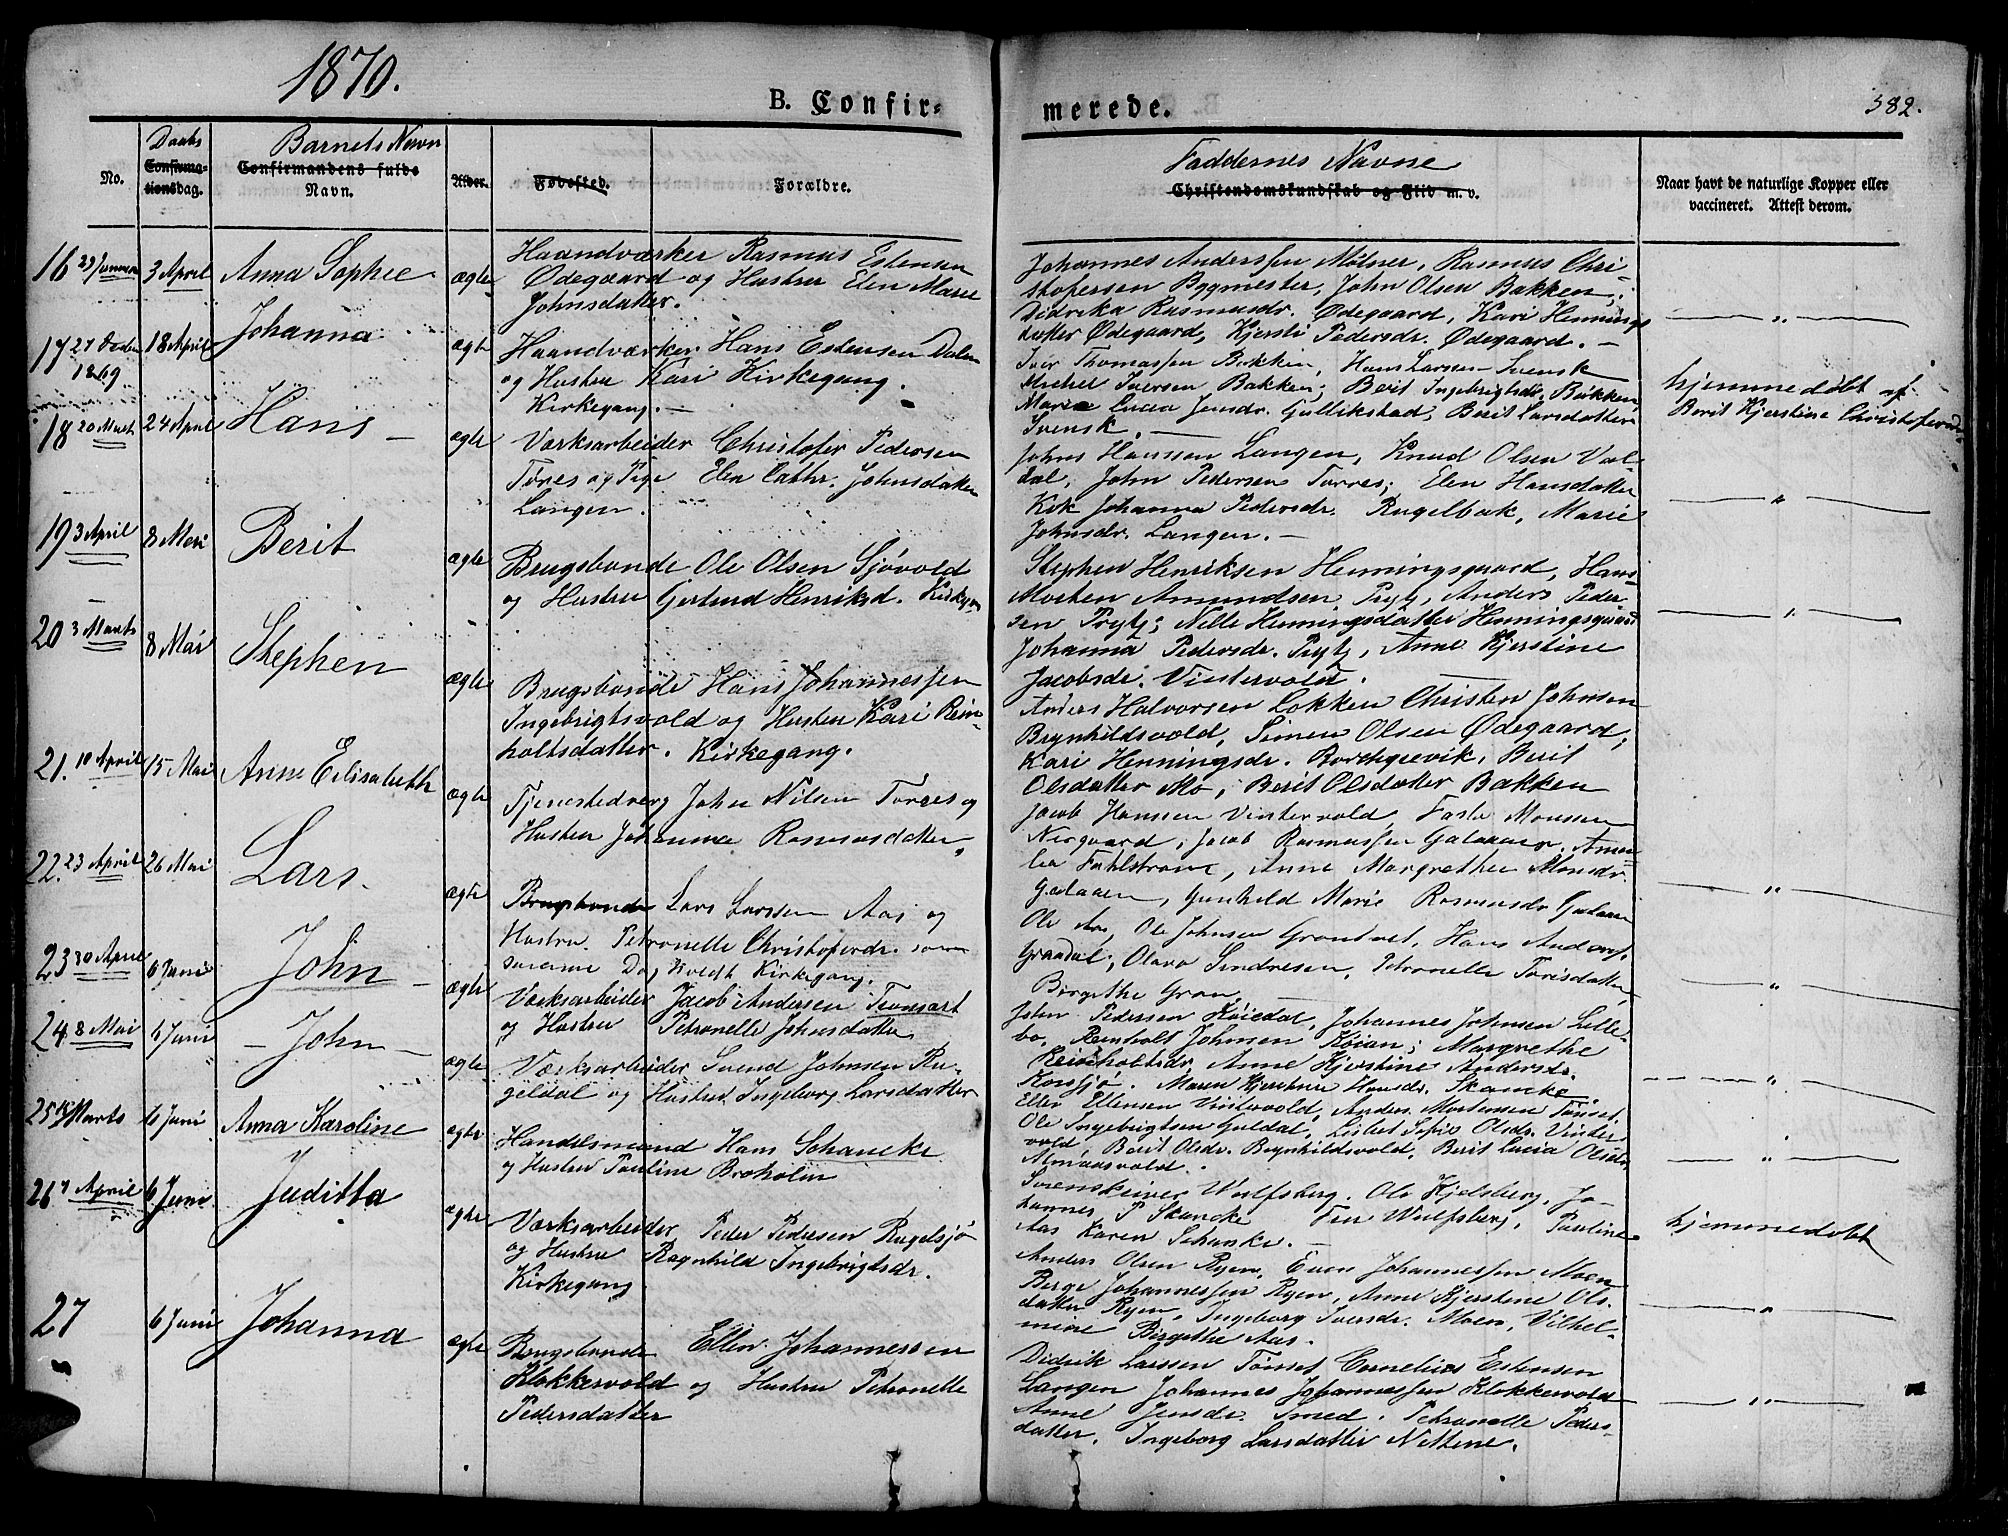 1870.
B. Confir-
merede.
382.
No.
Daabs
Confirma-
tionsdag.
Barnets Navn
Confirmandens fulde
Navn.
Alder.
Fødested.
Forældre.
Faddernes Navne
Christendomskundskab og Flid m. v.
Naar havt de naturlige Kopper eller
vaccineret. Attest derom.
16 29 Januar 3 April Anna Sophie ægte
Haandværker Rasmus Estensen
Ødegaard og Hustru Elen Marie
Johnsdatter.
Johannes Anderssen Rasmus Chri-
stofersen Bygmester, John Olsen Bakken,
Didrika Rasmusdr. Ødegaard, Kari Hennings
datter Ødegaard, Kjersti Pedersdr. Ødegaard. —
17 27 1869 18 April Johanna ægte
Haandværker Hans Estensen Dalen
og Hustru Kari Kirkegang.
Kirkegang. —
Iver Thomassen Bakken, Hans Larssen Svensk
Michel Iversen Bakken; Berit Ingebrigtsdr. Bakken,
Marie Lucia Jensdr. Gullikstad, Berit Larsdatter
Svensk. —
hjemmedøbt af
Berit Kjerstine
18 20 Marts 24 April Hans — ægte
Værksarbeider Christofer Pedersen
Tørres og Pige Elen Cathr. Johnsdatter
Langen.
Johns Hanssen Langen, Knud Olsen Val-
dal, John Pedersen Torres; Elen Hansdatter
Kok Johanna Pedersdr. Rugelbak, Marie
Johnsdr. Langen. —
19 3 April 8 Mai Berit ægte
Brugsbonde Ole Olsen Sjøvold
og Hustru Gjertrud Henriksd.
Stephen Henriksen Henningsgaard, Hans
Morten Amundsen Prytz, Anders Peder-
sen Prytz; Nille Henningsdatter Henningsgaard
Johanna Pedersdr. Prytz, Anne Kjerstine
Jacobsdr. Vintervold.
20 3 Marts 8 Mai Stephen ægte
Brugsbonde Hans Johannessen
Ingebrigtsvold og Hustru Kari Rein-
holtsdatter. Kirkegang.
Anders Halvorsen Løkken Christen Johnsen
Brynhildsvold, Simen Olsen Ødegaard,
Kari Henningsdr. Borchgrevik, Berit
Olsdatter Mo, Berit Olsdatter Bakken
21. 10 April 15 Mai Anne Elisabeth ægte
Tjenestedreng John Nilsen Torres og
Hustru Johanna Rasmusdatter.
Jacob Hanssen Vintervold, Faste Monsen
Nergaard, Jacob Rasmussen Galaaen, Ama-
lia Fahlstrøm, Anne Margrethe Monsdr.
Galaaen, Gunhild Marie Rasmusdr. Galaaen
22. 23 April 26 Mai Lars. ægte
Brugsbonde Lars Larssen Aas og
Hustru Petronelle Christoferdr. som
samme Dag holdt Kirkegang.
Ole Aas, Ole Johnsen Grøntvet, Hans Anders.
Grandal; Olava Sindresen, Petronelle Torisdatter,
Birgethe Gran. —
23 30 April 6 Juni John — ægte
Værksarbeider Jacob Andersen Tronsart
og Hustru Petronelle Johnsdatter
John Pedersen Køiedal, Johannes Johnsen Lille-
bo, Reinholt Johnsen Køian; Margrethe
Reinholtsdr. Anne Kjerstine Andersdr.
Korssjø. Maren Kjerstine Hansdr. Skancke.
24 8 Mai 6 Juni — John — ægte
Værksarbeider Svend Johnsen Ru-
geldal og Hustru Ingeborg Larsdatter
Ellev Ellensen Vintervold, Anders Mortensen Tønset,
Ole Ingebrigtsen Guldal, Lisbet Sofie Olsdr. Vinter
vold, Berit Olsdr. Brynhildsvold, Berit Lucia Olsdr.
Almaasvold.
25 Marts 6 Juni Anna Karoline ægte
Handelsmand Hans Schancke
og Hustru Pauline Broholm
Sorenskriver Wulfsberg. Ole Kjelsberg, Jo-
hannes P. Skancke Fru Wulfsberg, Pauline
Aas Karen Schanke. —
hjemmedøbt
26 7 April 6 Juni Juditta ægte
Værksarbeider Peder Pedersen Rugelsjø
og Hustru Ragnhild Ingebrigtsdr.
Kirkegang
Anders Olsen Ryen, Even Johannessen Moen
Berge Johannessen Ryen, Anne Kjerstine Ols-
datter Ryen, Ingeborg Iversdr. Moen, Vilhel-
mine Birgethe Aas.
27 6 Juni Johanna ægte
Brugsbonde Ellen Johannessen
Klokkervold og Hustru Petronelle
Pedersdatter
Didrik Larssen Tønset Cornelius Estensen
Langen Johannes Johannessen Klokkervold
Anne Jensdr. Smed. Petronelle Peders-
datter, Ingeborg Larsdatter